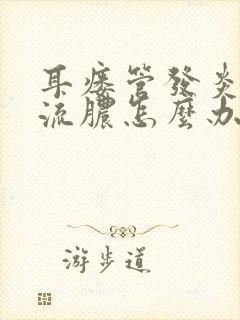 耳瘻管發炎
流膿怎麼办
游步道